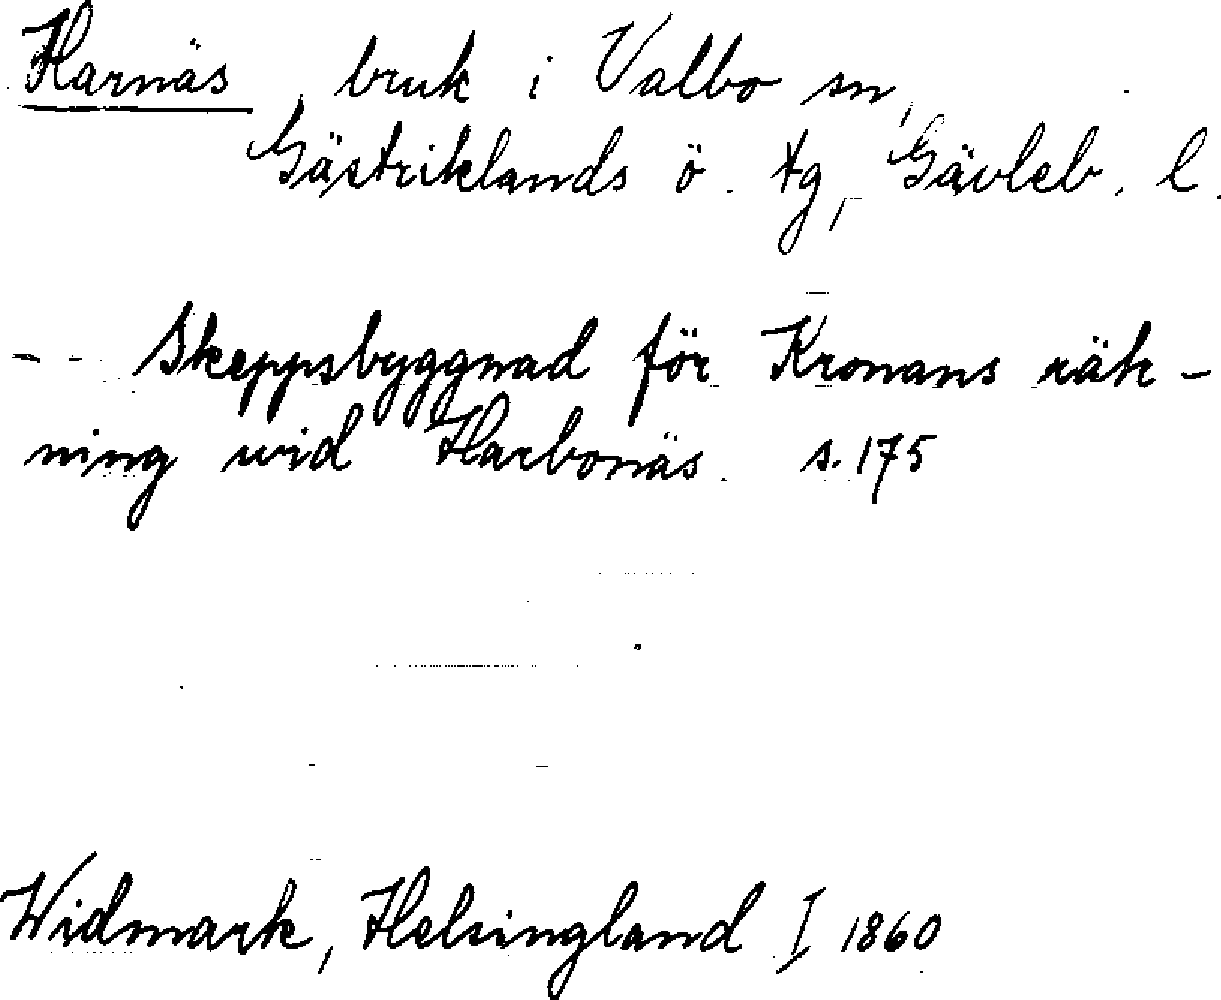 Harnäs, bruk i Valbo sn,
Gästriklands ö. tg, Gävleb. l.
- - Skeppsbyggnad för Kronans räk-
ning wid Harbonäs. s. 175
Widmark, Helsingland I 1860